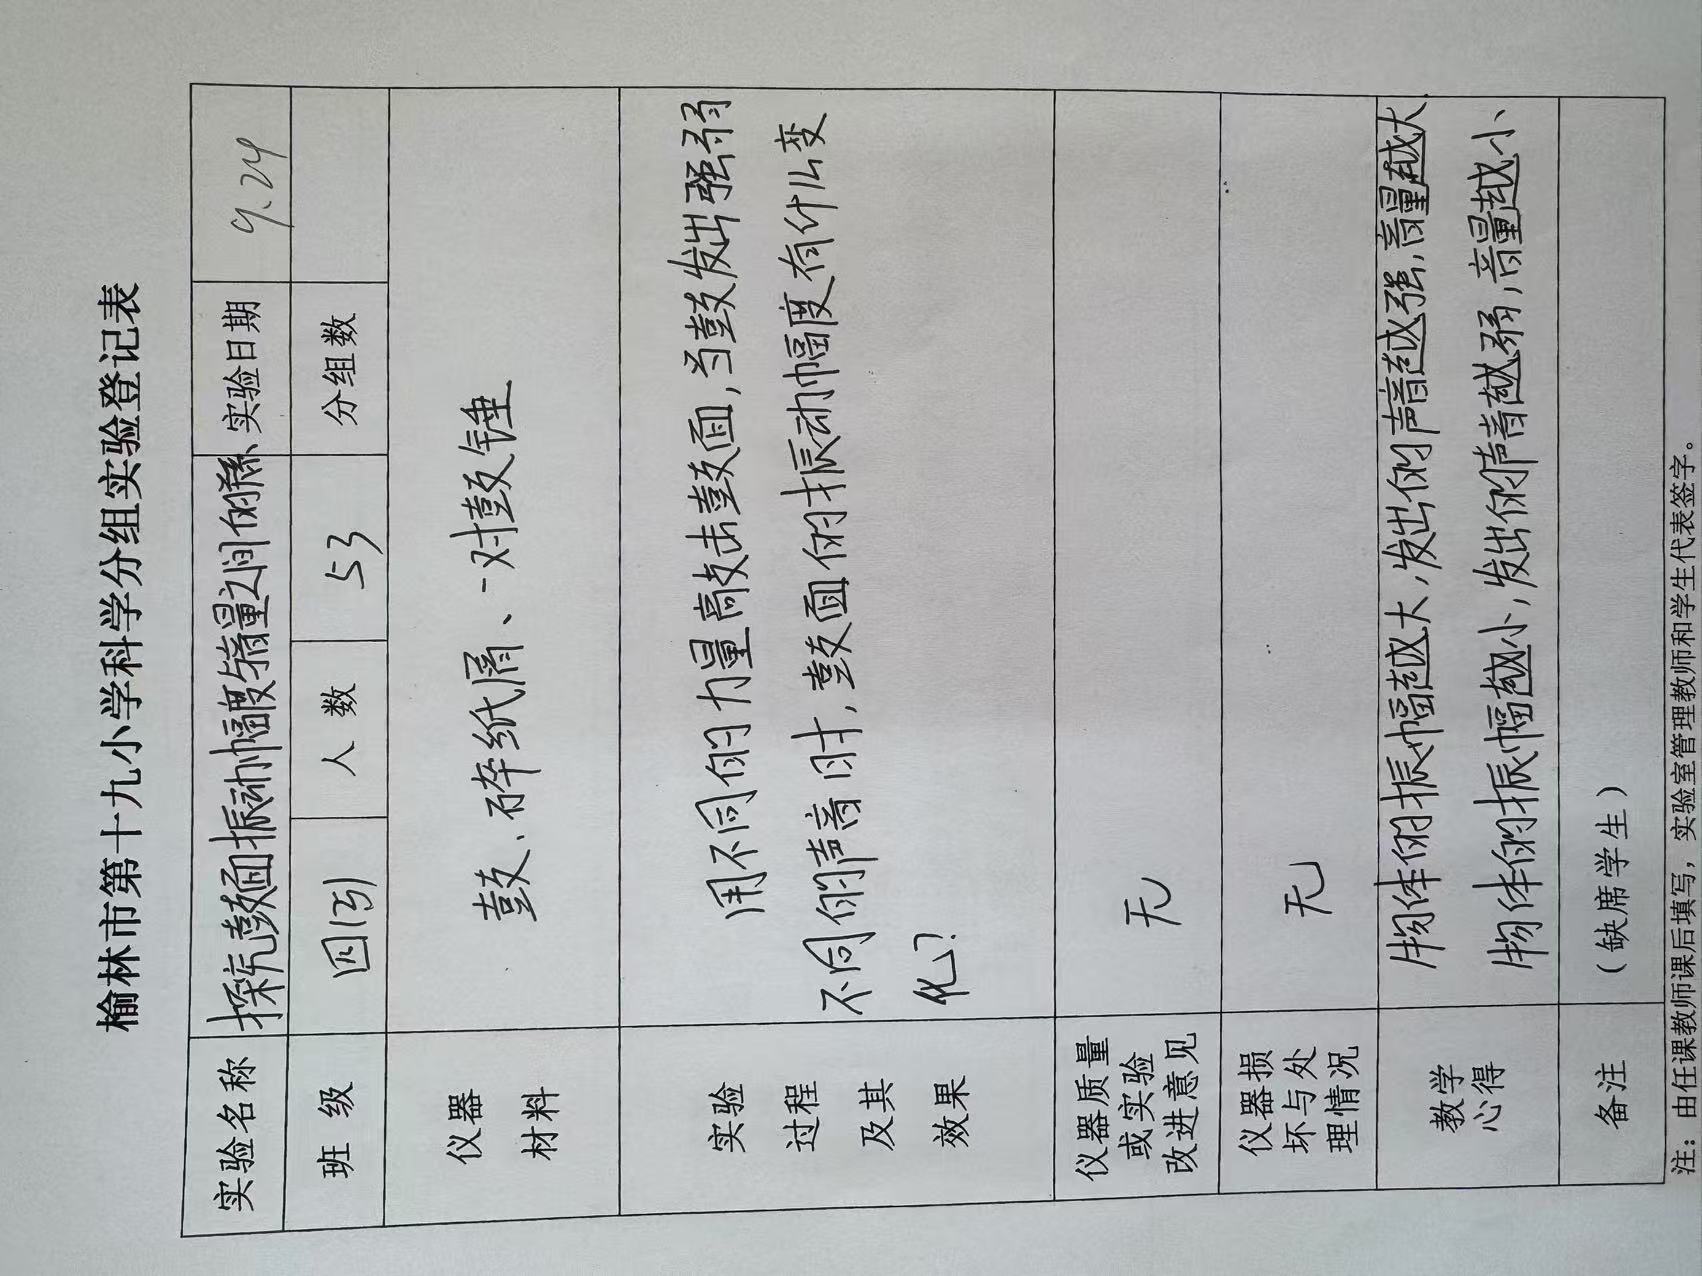 榆林市第十九小学科学分组实验登记表
实验名称 探究鼓面振动幅度与音量之间的关系 实验日期 9.24
班 级 四(3) 人 数 53 分组数
仪器 材料 鼓、碎纸屑、一对鼓锤
实验 过程 及其 效果
用不同的力量敲击鼓面,当鼓发出强弱
不同的声音时,鼓面的振动幅度有什么变
化?
仪器质量 或实验 改进意见 无
仪器损 坏与处 理情况 无
教学 心得
物体的振幅越大,发出的声音越强,音量越大
物体的振幅越小,发出的声音越弱,音量越小
备注 （缺席学生）
注：由任课教师课后填写，实验室管理教师和学生代表签字。